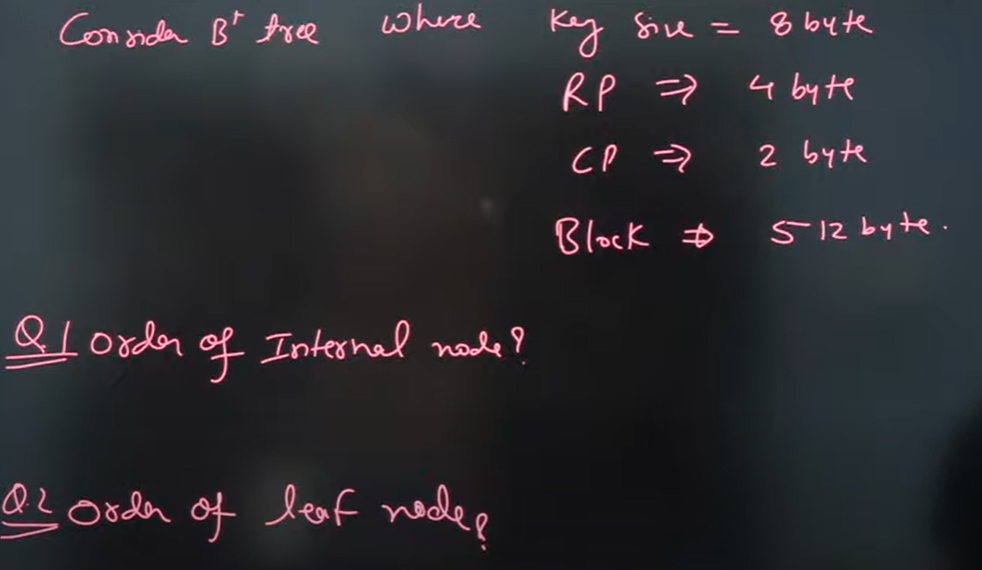 Consider B+ tree where key size = 8 byte
RP ⇒ 4 byte
CP ⇒ 2 byte
Block ⇒ 512 byte.
Q1 Order of Internal node?
Q.2 Order of leaf node?